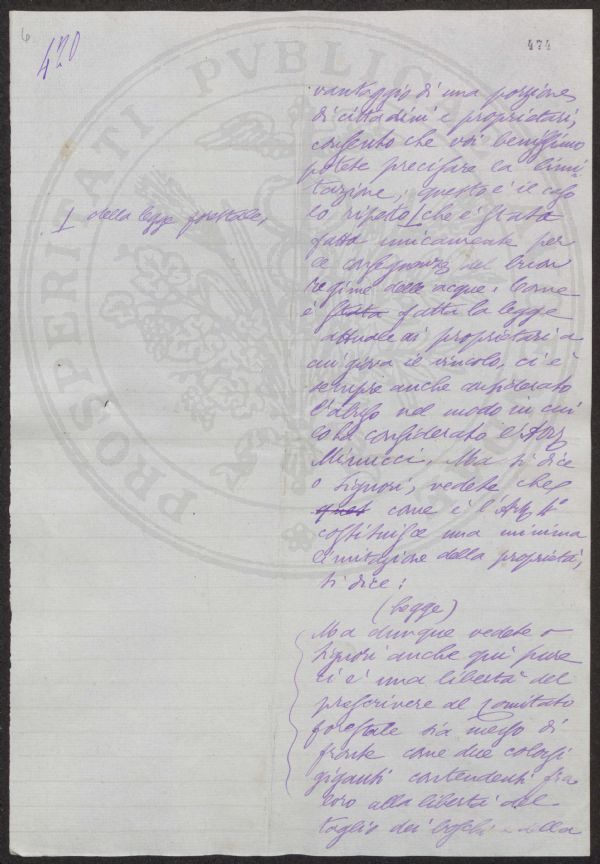 6
420
474
PROSPERITATI PVBLICAE
vantaggio di una porzione
di cittadini e proprietari,
consento che voi benissimo
potete precisare la limi
tazione, questo è il caso
lo ripeto I che è stata
fatta unicamente per
la conservazione del buon
regime delle acque. Come
è stata fatta la legge
attuale ai proprietari a
cui giova il vincolo, ci è
sempre anche considerato
l'abuso nel modo in cui
lo ha considerato l'Avv.
Minucci. Ma si dice
o Signori, vedete che
come è l'Art 4°
costituisce una minima
limitazione della proprietà,
si dice:
(legge)
Ma dunque vedete o
Signori anche qui pure
ci è una libertà del
prescrivere al Comitato
forestale sia messo di
fronte come due colossi
giganti contendenti fra
loro alla libertà del
taglio dei boschi e della
I della legge forestale,